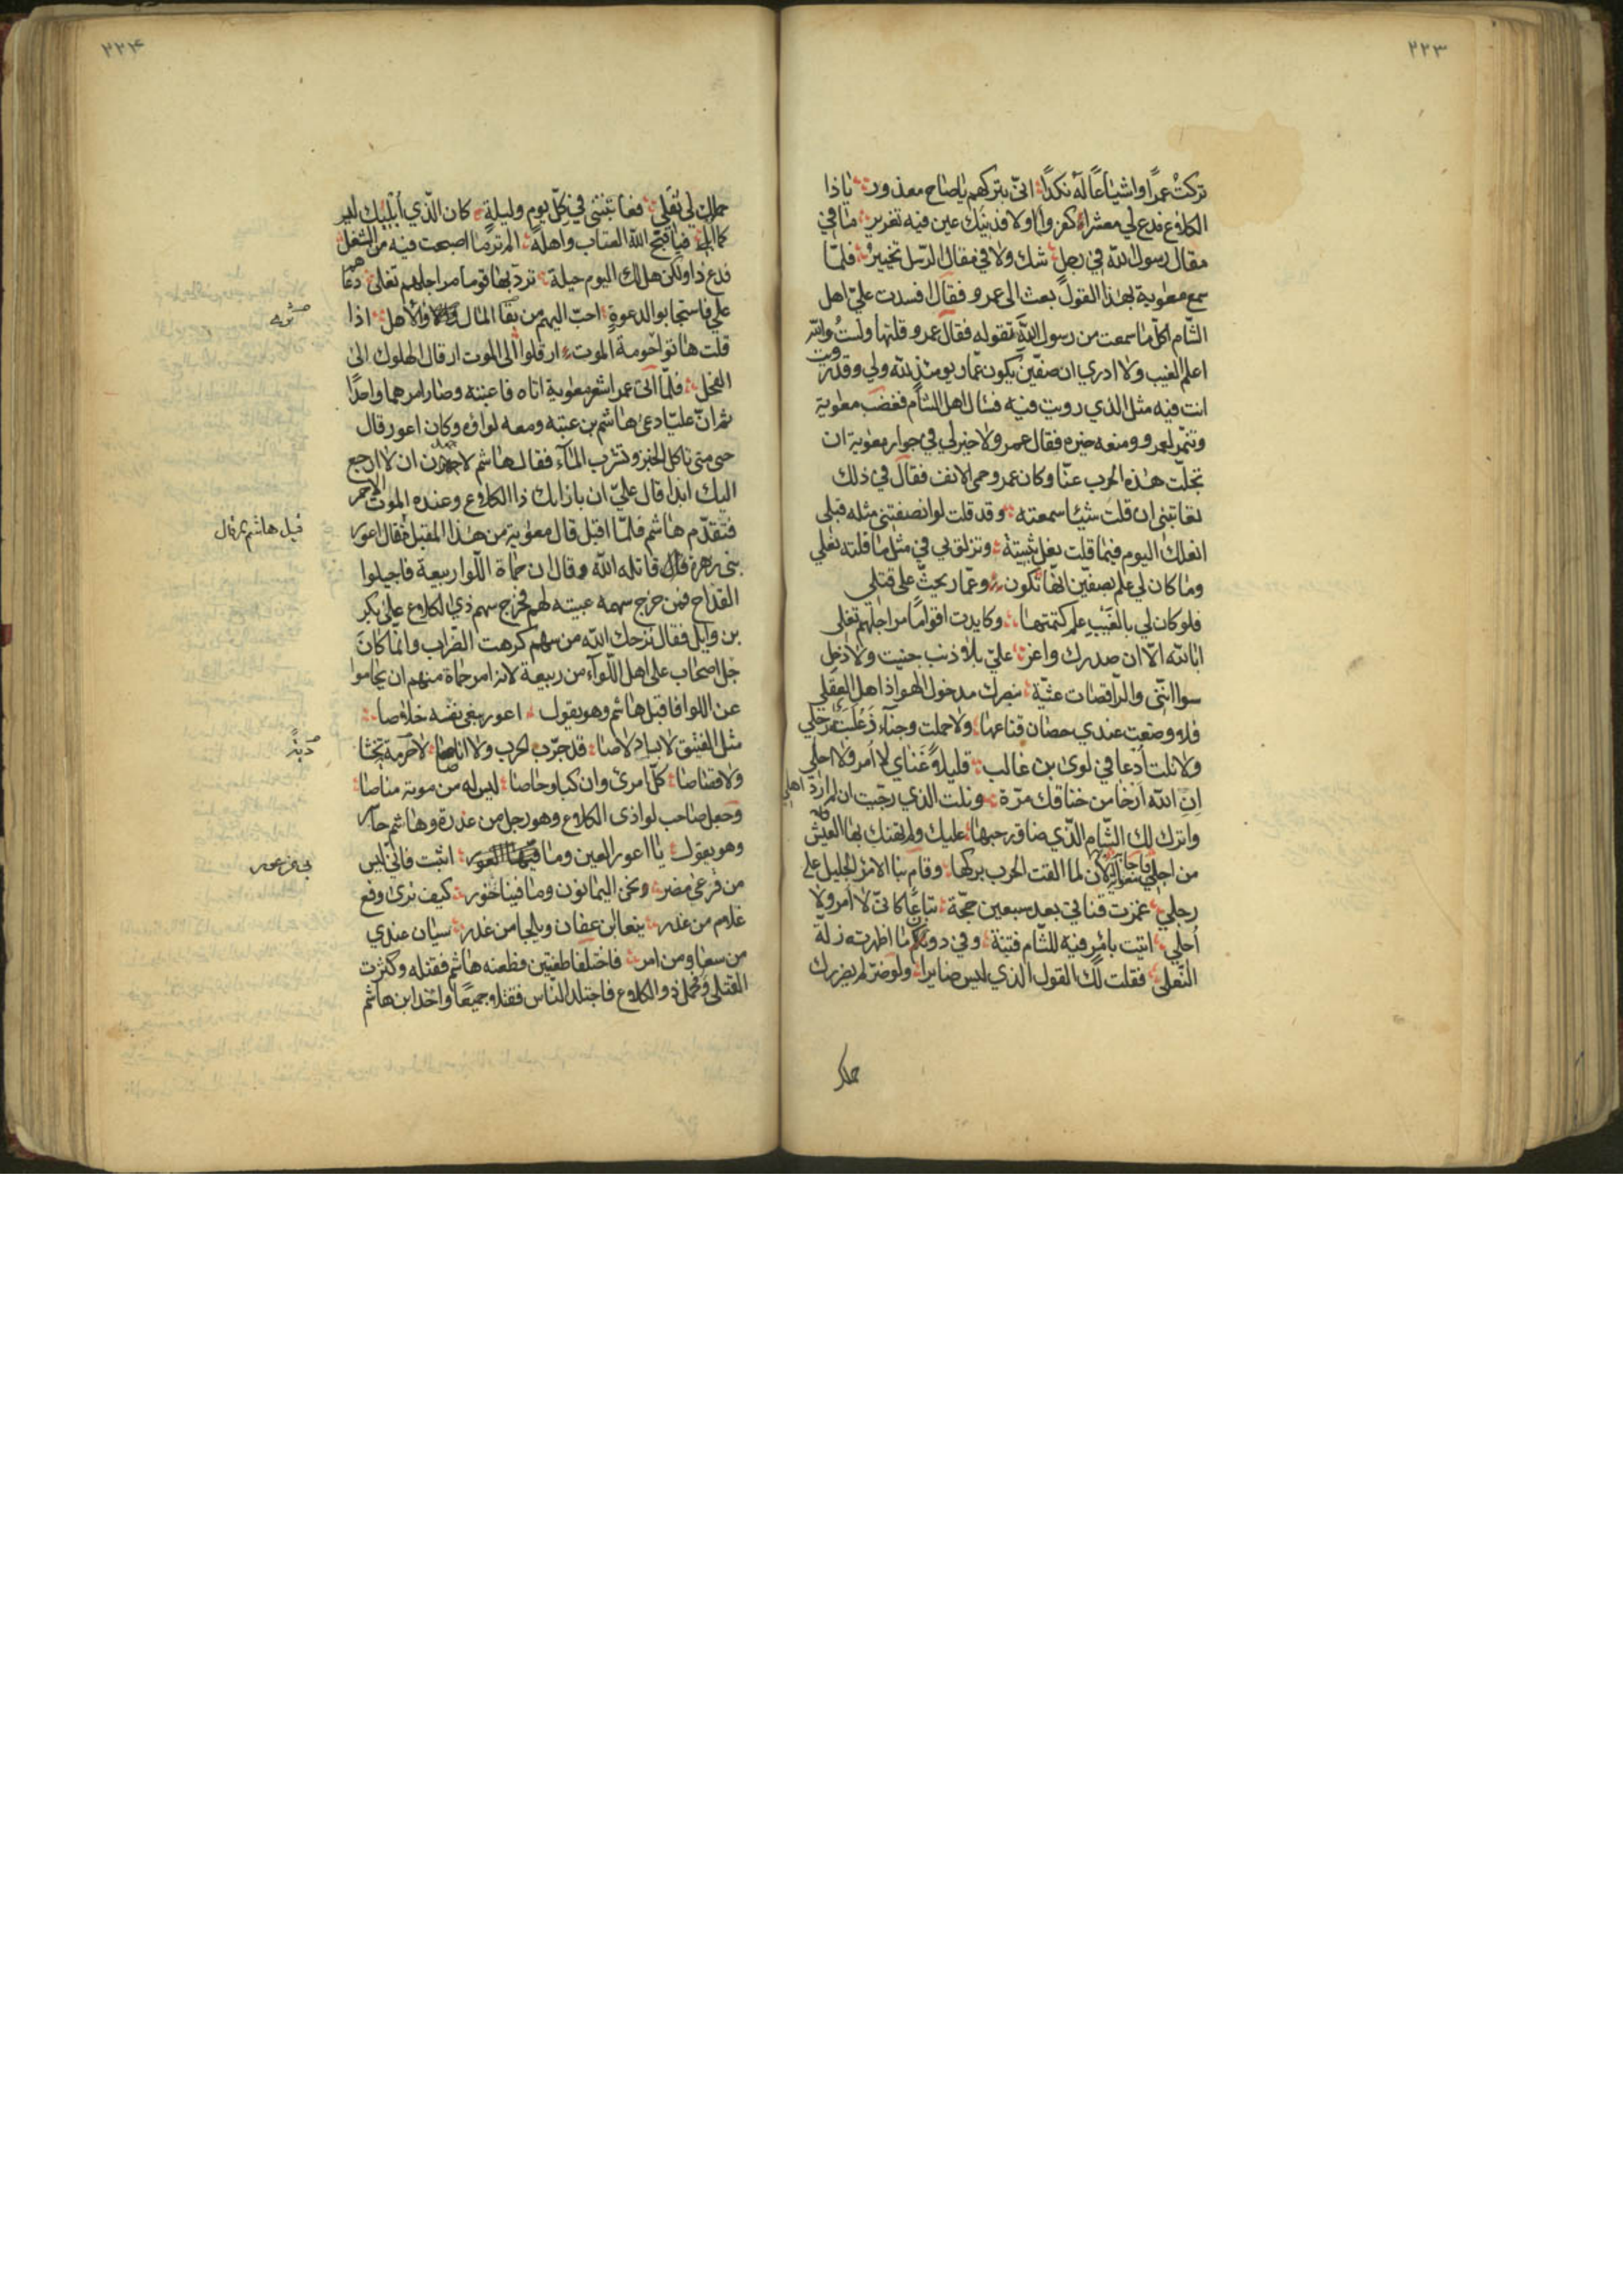 ٢٢٣
تركتُ عمرًا واشياعًا له نكدًا انّي بتركهم يا صاح معذور يا ذا
الكلاع فدع لي معشرا كفروا اولا فدينك عين فيه تغرير ما في
مقال رسول الله في رجل شك ولا في مقال الرسل تخيير فلمّا
سمع معوية بهذا القول بعث الى عمرو فقال افسدت علىّ اهل
الشام اكلّ ما سمعت من رسول الله تقوله فقال عمرو قلتها ولستُ والله
اعلم الغيب ولا ادري ان صفّين يكون عمّار يومئذ لله ولي وقد رويت
انت فيه مثل الذي رويت فيه فسال اهل الشام فغضب معوية
وتنمّر لعمرو ومنعه خيره فقال عمرو لا خير لي في جوار معوية ان
تجلّت هذه الحرب عنّا وكان عمرو حمى الانف فقال في ذلك
تعاتبنى ان قلت شيئا سمعته وقد قلت لو انصفتنى مثله قبلي
انعلك اليوم فيما قلت نعل ثبيتة وتزلق بي في مثل ما قلته نعلي
وما كان لي علم بصفّين انّها تكون وعمّار يحثّ على قتلي
فلو كان لي بالغيب علم كتمتها وكايدت اقوامًا مراجلهم تغلى
ابا لله الّا ان صدرك واغر علىّ بلا ذنب جنيت ولا ذحل
سوا انّنى والراقصات عشيّة بنصرك مدخول الهوا ذاهل العقل
فلا وضعت عندي حصان قناعها ولا حملت وجناء ذعلبة رحلي
ولا زلت ادعا في لوى بن غالب قليلا غناى لا امر ولا احلي
ان الله ارخا من خناقك مرّة ونلت الذي رجّيت ان لم ازر اهلي
واترك لك الشام الذي ضاق رحبها عليك ولم يهنك بها العيش
من اجلي فاجابه معوية الآن لما القت الحرب بركها وقام بنا الامر الجليل على
رجلي غمزت قناتي بعد سبعين حجّة تباعًا كانّى لا امر ولا
احلي اتيت بامر فيه للشام فتنة وفي دون ما اظهرته زلّة
النعل فقلت لك القول الذي ليس ضايرا ولو ضرّ لم يضررك
حملك
٢٢٤
حملك لي ثقلي فعاتبتنى في كلّ يوم وليلة كان الذي ابليك ليس
كما ابلى فيا قبّح الله العتاب واهله الم تر ما اصبحت فيه من الشغل
فدع ذا ولكن هل لك اليوم حيلة تردّ بها قوما مراجلهم تغلى دعاهم
علي فاستجابوا لدعوة احبّ اليهم من بقا المال والاهل اذا
قلت هابوا حومة الموت ارقلوا الى الموت ارقال الهلوك الى
الفحل فلمّا اتى عمرا شعر معوية اتاه فاعتبه وصار امرهما واحدًا
ثم انّ عليّا دعى هاشم بن عتبة ومعه لواؤه وكان اعور فقال
حتى متى تاكل الخبز وتشرب الماء فقال هاشم لاجهدن ان لا ارجع
اليك ابدا قال عليّ ان بازائك ذا الكلاع وعنده الموت الاحمر
فتقدّم هاشم فلمّا اقبل قال معوية من هذا المقبل فقال اعور
قيل هاشم المرقال
بنى زهرة قال قاتله الله وقال ان حماة اللّوا ربيعة فاجيلوا
القداح فمن خرج سهمه عبيته لهم فخرج سهم ذي الكلاع على بكر
بن وايل فقال ترّحك الله من سهم كرهت الضراب وانّما كان
جل اصحاب على اهل اللّواء من ربيعة لانه امر حماة منهم ان يحاموا
عن اللوا فاقبل هاشم وهو يقول اعور يبغى نفسه خلاصا
مثل الفنيق لابسا دلاصا قد جرّب الحرب ولا اناصا لا دية يخشا
ديةً
ولا قصاصا كلّ امرئ وان كبا وحاصا ليس له من موته مناصا
وحمل صاحب لوا ذى الكلاع وهو رجل من عذرة وهاشم حاسر
وهو يقول يا اعور العين وما اثبت فانّي ليس
بى من عور
من فرعى مضر ونحن اليمانون وما فينا خور كيف ترى وقع
غلام من عذر ينعا ابن عفان ويلحا من غدر سيّان عندي
من سعا ومن امر فاختلفا طعنتين فطعنه هاشم فقتله وكثرت
القتلى وحمل ذو الكلاع فاجتلد الناس فقتلا جميعًا واخذ ابن هاشم